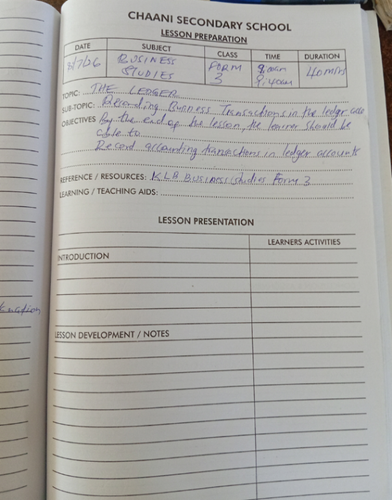 CHAANI SECONDARY SCHOOL
LESSON PREPARATION
DATE SUBJECT CLASS TIME DURATION
8/7/26 BUSINESS STUDIES FORM 3 8am 8:40am 40min
TOPIC: THE LEDGER
SUB-TOPIC: Recording Business Transactions in the ledger
OBJECTIVES By the end of the lesson, the learner should be
able to
Record accounting transactions in ledger accounts
REFERENCE / RESOURCES: KLB Business studies Form 3
LEARNING / TEACHING AIDS:
LESSON PRESENTATION
LEARNERS ACTIVITIES
INTRODUCTION
LESSON DEVELOPMENT / NOTES